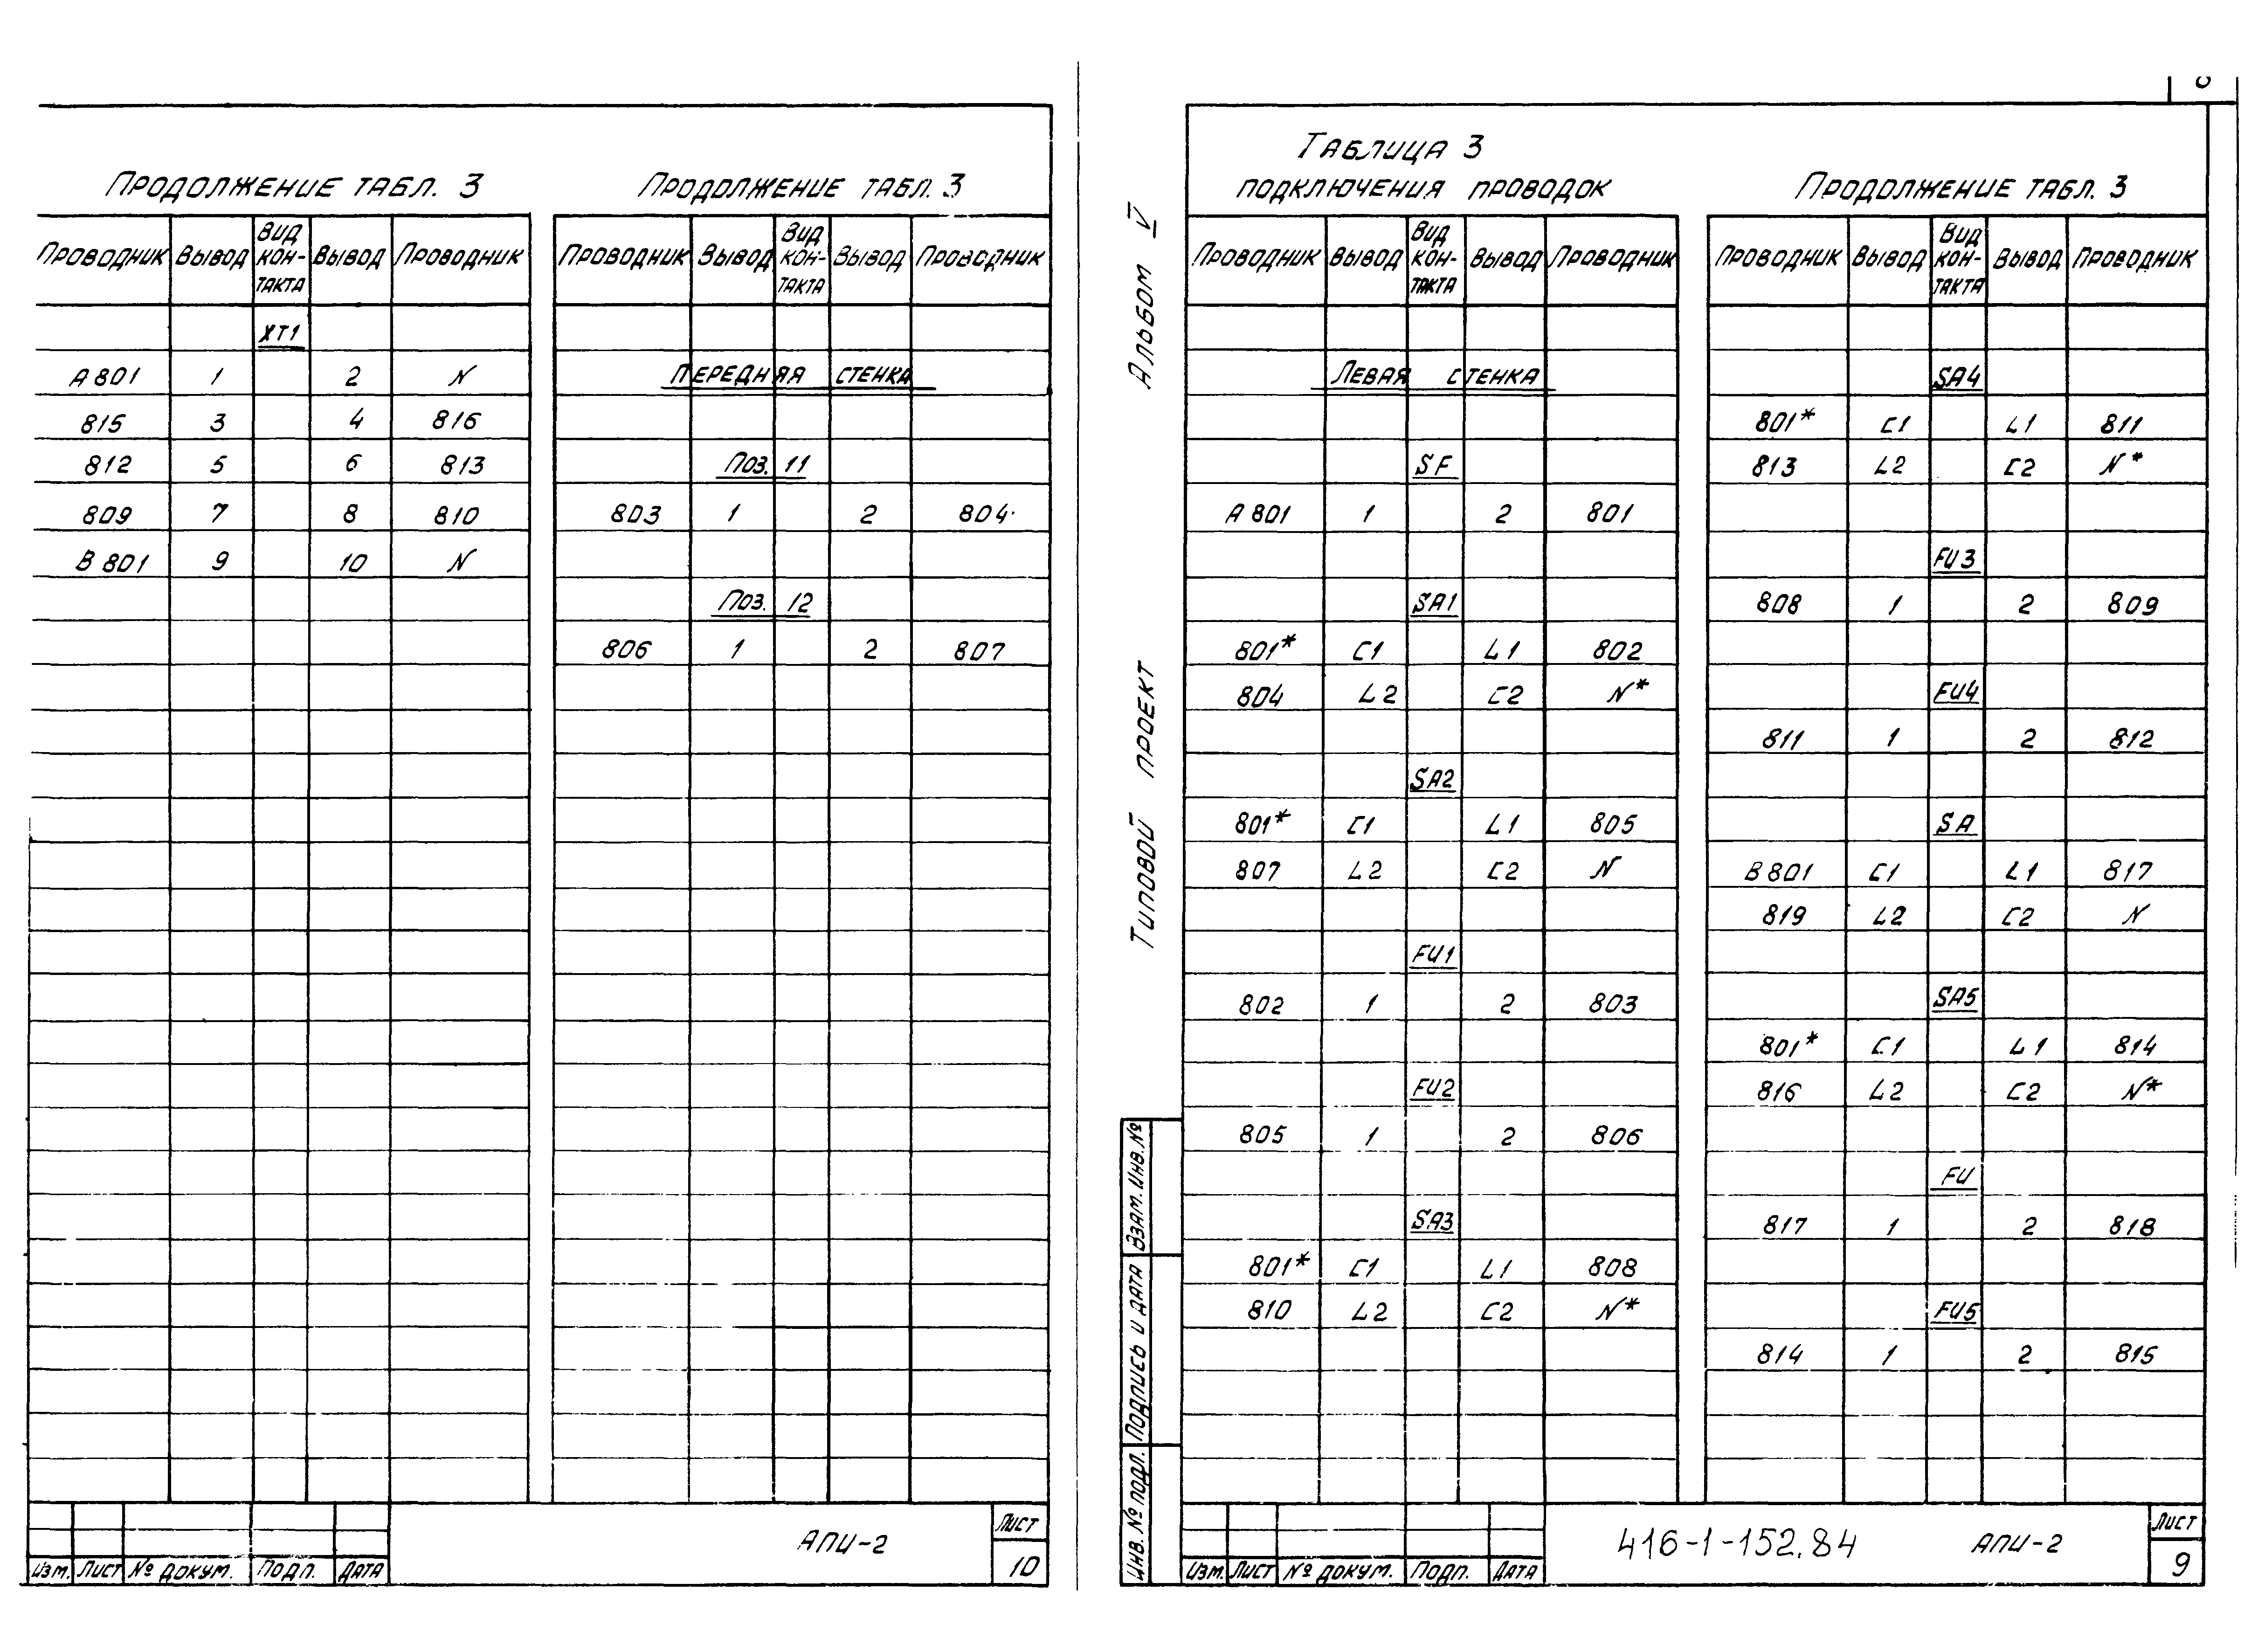 Продолжение табл. 3
Проводник Вывод Вид контакта Вывод Проводник
XT1
A801 1 2 N
815 3 4 816
812 5 6 813
809 7 8 810
B801 9 10 N
Продолжение табл. 3
Проводник Вывод Вид контакта Вывод Проводник
Передняя стенка
Поз. 11
803 1 2 804
Поз. 12
806 1 2 807
Изм. Лист № докум. Подп. Дата
АПИ-2
Лист
10
Альбом V
Типовой проект
Взам. Инв. №
Подпись и дата
Инв. № подл.
Таблица 3
подключения проводок
Проводник Вывод Вид контакта Вывод Проводник
Левая стенка
SF
A801 1 2 801
SA1
801* C1 L1 802
804 L2 C2 N*
SA2
801* C1 L1 805
807 L2 C2 N
FU1
802 1 2 803
FU2
805 1 2 806
SA3
801* C1 L1 808
810 L2 C2 N*
Продолжение табл. 3
Проводник Вывод Вид контакта Вывод Проводник
SA4
801* C1 L1 811
813 L2 C2 N*
FU3
808 1 2 809
FU4
811 1 2 812
SA
B801 C1 L1 817
819 L2 C2 N
SA5
801* C1 L1 814
816 L2 C2 N*
FU
817 1 2 818
FU5
814 1 2 815
Изм. Лист № докум. Подп. Дата
416-1-152.84 АПИ-2
Лист
9